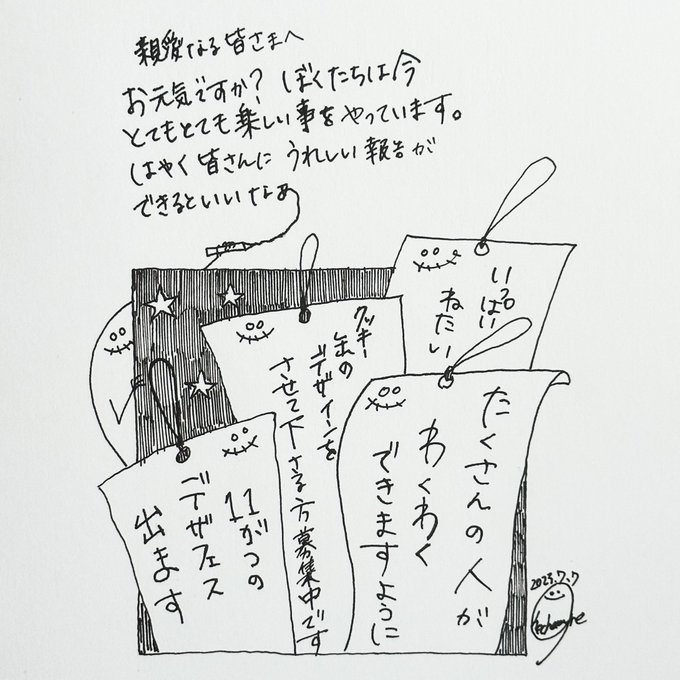 親愛なる皆さまへ
お元気ですか？ぼくたちは今
とてもとても楽しい事をやっています。
はやく皆さんにうれしい報告が
できるといいなあ
いっぱい
ねたい
クッキー
缶の
デザインを
させて下さる方募集中です
たくさんの人が
わくわく
できますように
11がつの
デザフェス
出ます
2023.7.7